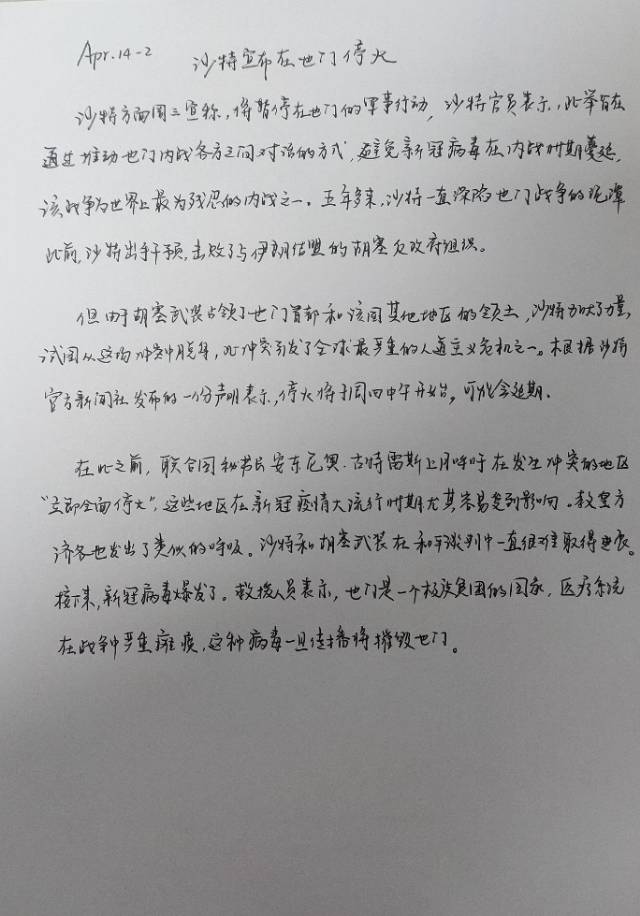 Apr.14-2 沙特宣布在也门停火
沙特方面周三宣称,将暂停在也门的军事行动,沙特官员表示,此举旨在
通过推动也门内战各方之间对话的方式,避免新冠病毒在内战时期蔓延,
该战争为世界上最为残忍的内战之一。五年多来,沙特一直深陷也门战争的泥潭
此前,沙特出手干预,击败了与伊朗结盟的胡塞反政府组织。
但由于胡塞武装占领了也门首都和该国其他地区的领土,沙特方大力量,
试图从这场冲突中脱身,此冲突引发了全球最严重的人道主义危机之一。根据沙特
官方新闻社发布的一份声明表示,停火将于周四中午开始,可能会延期.
在此之前,联合国秘书长安东尼奥·古特雷斯上月呼吁在发生冲突的地区
“立即全面停火”,这些地区在新冠疫情大流行时期尤其容易受到影响。教皇方
济各也发出了类似的呼吸。沙特和胡塞武装在和平谈判中一直很难取得进展。
接下来,新冠病毒爆发了。救援人员表示,也门是一个极度贫困的国家,医疗系统
在战争中严重瘫痪,这种病毒一旦传播将摧毁也门。